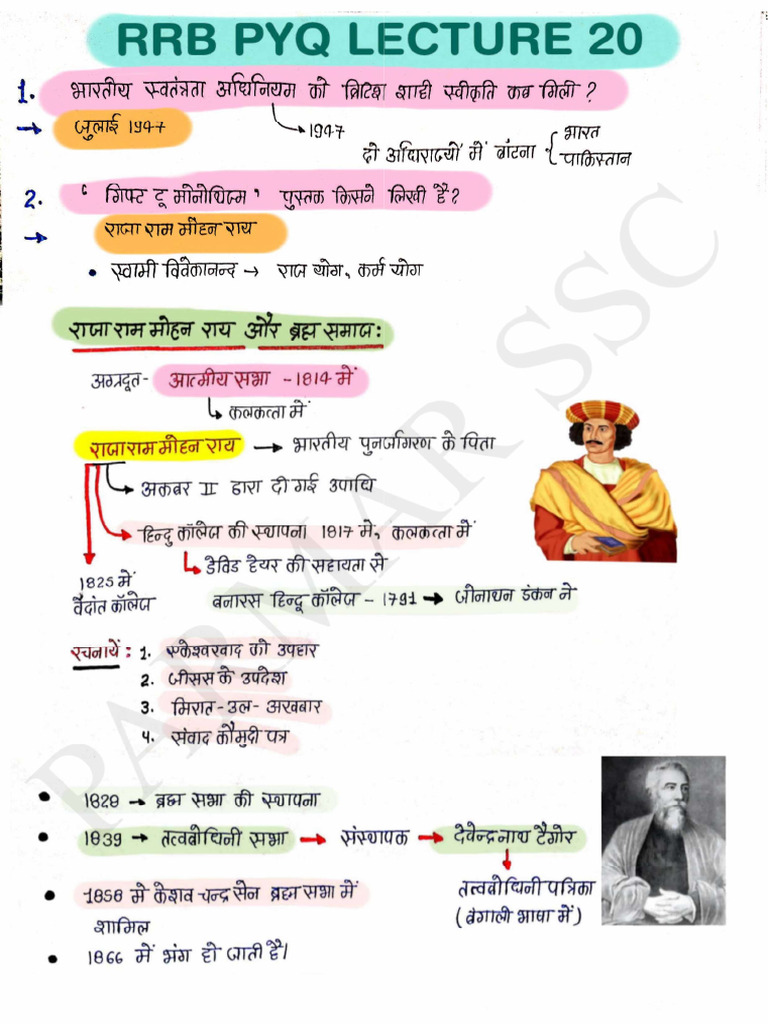 RRB PYQ LECTURE 20
1. भारतीय स्वतंत्रता अधिनियम को ब्रिटिश शाही स्वीकृति कब मिली ?
→ जुलाई 1947
1947
दो अधिराज्यों में बांटना { भारत
पाकिस्तान
2. ‘ गिफ्ट टू मोनोथिज्म ’ पुस्तक किसने लिखी है ?
→ राजा राम मोहन राय
• स्वामी विवेकानन्द → राज योग, कर्म योग
राजा राम मोहन राय और ब्रह्म समाज :
अग्रदूत- आत्मीय सभा - 1814 में
कलकत्ता में
राजा राम मोहन राय → भारतीय पुनर्जागरण के पिता
→ अकबर II द्वारा दी गई उपाधि
→ हिन्दु कॉलेज की स्थापना 1817 में, कलकत्ता में
डेविड हैयर की सहायता से
1825 में
वैदांत कॉलेज
बनारस हिन्दू कॉलेज - 1791 → जोनाथन डंकन ने
रचनायें : 1. एकेश्वरवाद को उपहार
2. जीसस के उपदेश
3. मिरात-उल- अखबार
4. संवाद कौमुदी पत्र
• 1829 → ब्रह्म सभा की स्थापना
• 1839 → तत्वबोधिनी सभा → संस्थापक → देवेन्द्रनाथ टैगोर
तत्त्वबोधिनी पत्रिका
(बंगाली भाषा में)
• 1858 मे केशव चन्द्र सेन ब्रह्म सभा में
शामिल
• 1866 में भंग हो जाती है।
PARMAR SSC